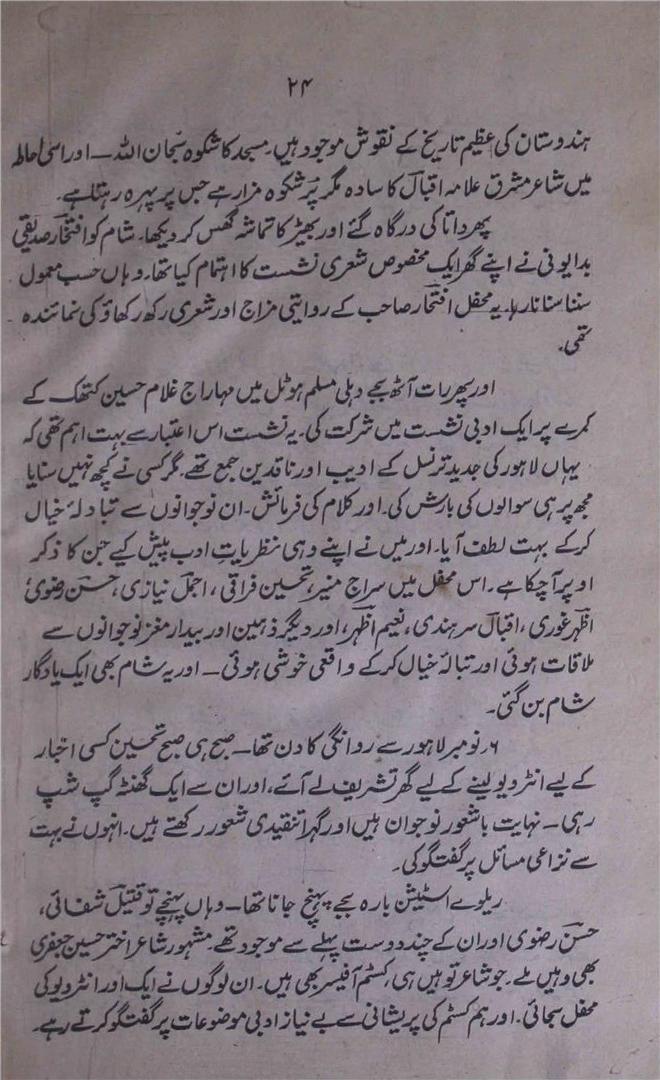 ۲۴
ہندوستان کی عظیم تاریخ کے نقوش موجود ہیں۔ مسجد کا شکوہ سبحان اللہ ــ اور اسی احاطہ
میں شاعر مشرق علامہ اقبالؔ کا سادہ مگر پُر شکوہ مزار ہے جس پر پہرہ رہتا ہے۔
پھر داتا کی درگاہ گئے اور بھیڑ کا تماشہ گھس کر دیکھا۔ شام کو افتخارؔ صدیقی
بدایونی نے اپنے گھر ایک مخصوص شعری نشست کا اہتمام کیا تھا۔ وہاں حسب معمول
سننا سنانا رہا۔ یہ محفل افتخار صاحب کے روایتی مزاج اور شعری رکھ رکھاؤ کی نمائندہ
تھی۔
اور پھر رات آٹھ بجے دہلی مسلم ہوٹل میں مہاراج غلام حسین کتھک کے
کمرے پر ایک ادبی نشست میں شرکت کی۔ یہ نشست اس اعتبار سے بہت اہم تھی کہ
یہاں لاہور کی جدید تر نسل کے ادیب اور ناقدین جمع تھے۔ مگر کسی نے کچھ نہیں سنایا
مجھ پر ہی سوالوں کی بارش کی۔ اور کلام کی فرمائش۔ ان نوجوانوں سے تبادلۂ خیال
کرکے بہت لطف آیا۔ اور میں نے اپنے وہی نظریاتِ ادب پیش کیے جن کا ذکر
اوپر آچکا ہے۔ اس محفل میں سراج منیر، تحسین فراقی، اجملؔ نیازی، حسنؔ رضوی
اظہرؔ غوری، اقبالؔ سرہندی، نعیم اظہرؔ، اور دیگر ذہین اور بیدار مغز نوجوانوں سے
ملاقات ہوئی اور تبالۂ خیال کرکے واقعی خوشی ہوئی ــ اور یہ شام بھی ایک یادگار
شام بن گئی۔
۶؍ نومبر لاہور سے روانگی کا دن تھا ــ صبح ہی صبح تحسین کسی اخبار
کے لیے انٹرویو لینے کے لیے گھر تشریف لے آئے، اور ان سے ایک گھنٹہ گپ شپ
رہی ــ نہایت باشعور نوجوان ہیں اور گہرا تنقیدی شعور رکھتے ہیں۔ انہوں نے بہت
سے نزاعی مسائل پر گفتگو کی۔
ریلوے اسٹیشن بارہ بجے پہنچ جانا تھا ــ وہاں پہنچے تو قتیلؔ شفائی،
حسنؔ رضوی اور ان کے چند دوست پہلے سے موجود تھے۔ مشہور شاعر اختر حسین جعفری
بھی وہیں ملے۔ جو شاعر تو ہیں ہی، کسٹم آفیسر بھی ہیں۔ ان لوگوں نے ایک اور انٹرویو کی
محفل سجائی۔ اور ہم کسٹم کی پریشانی سے بے نیاز ادبی موضوعات پر گفتگو کرتے رہے۔